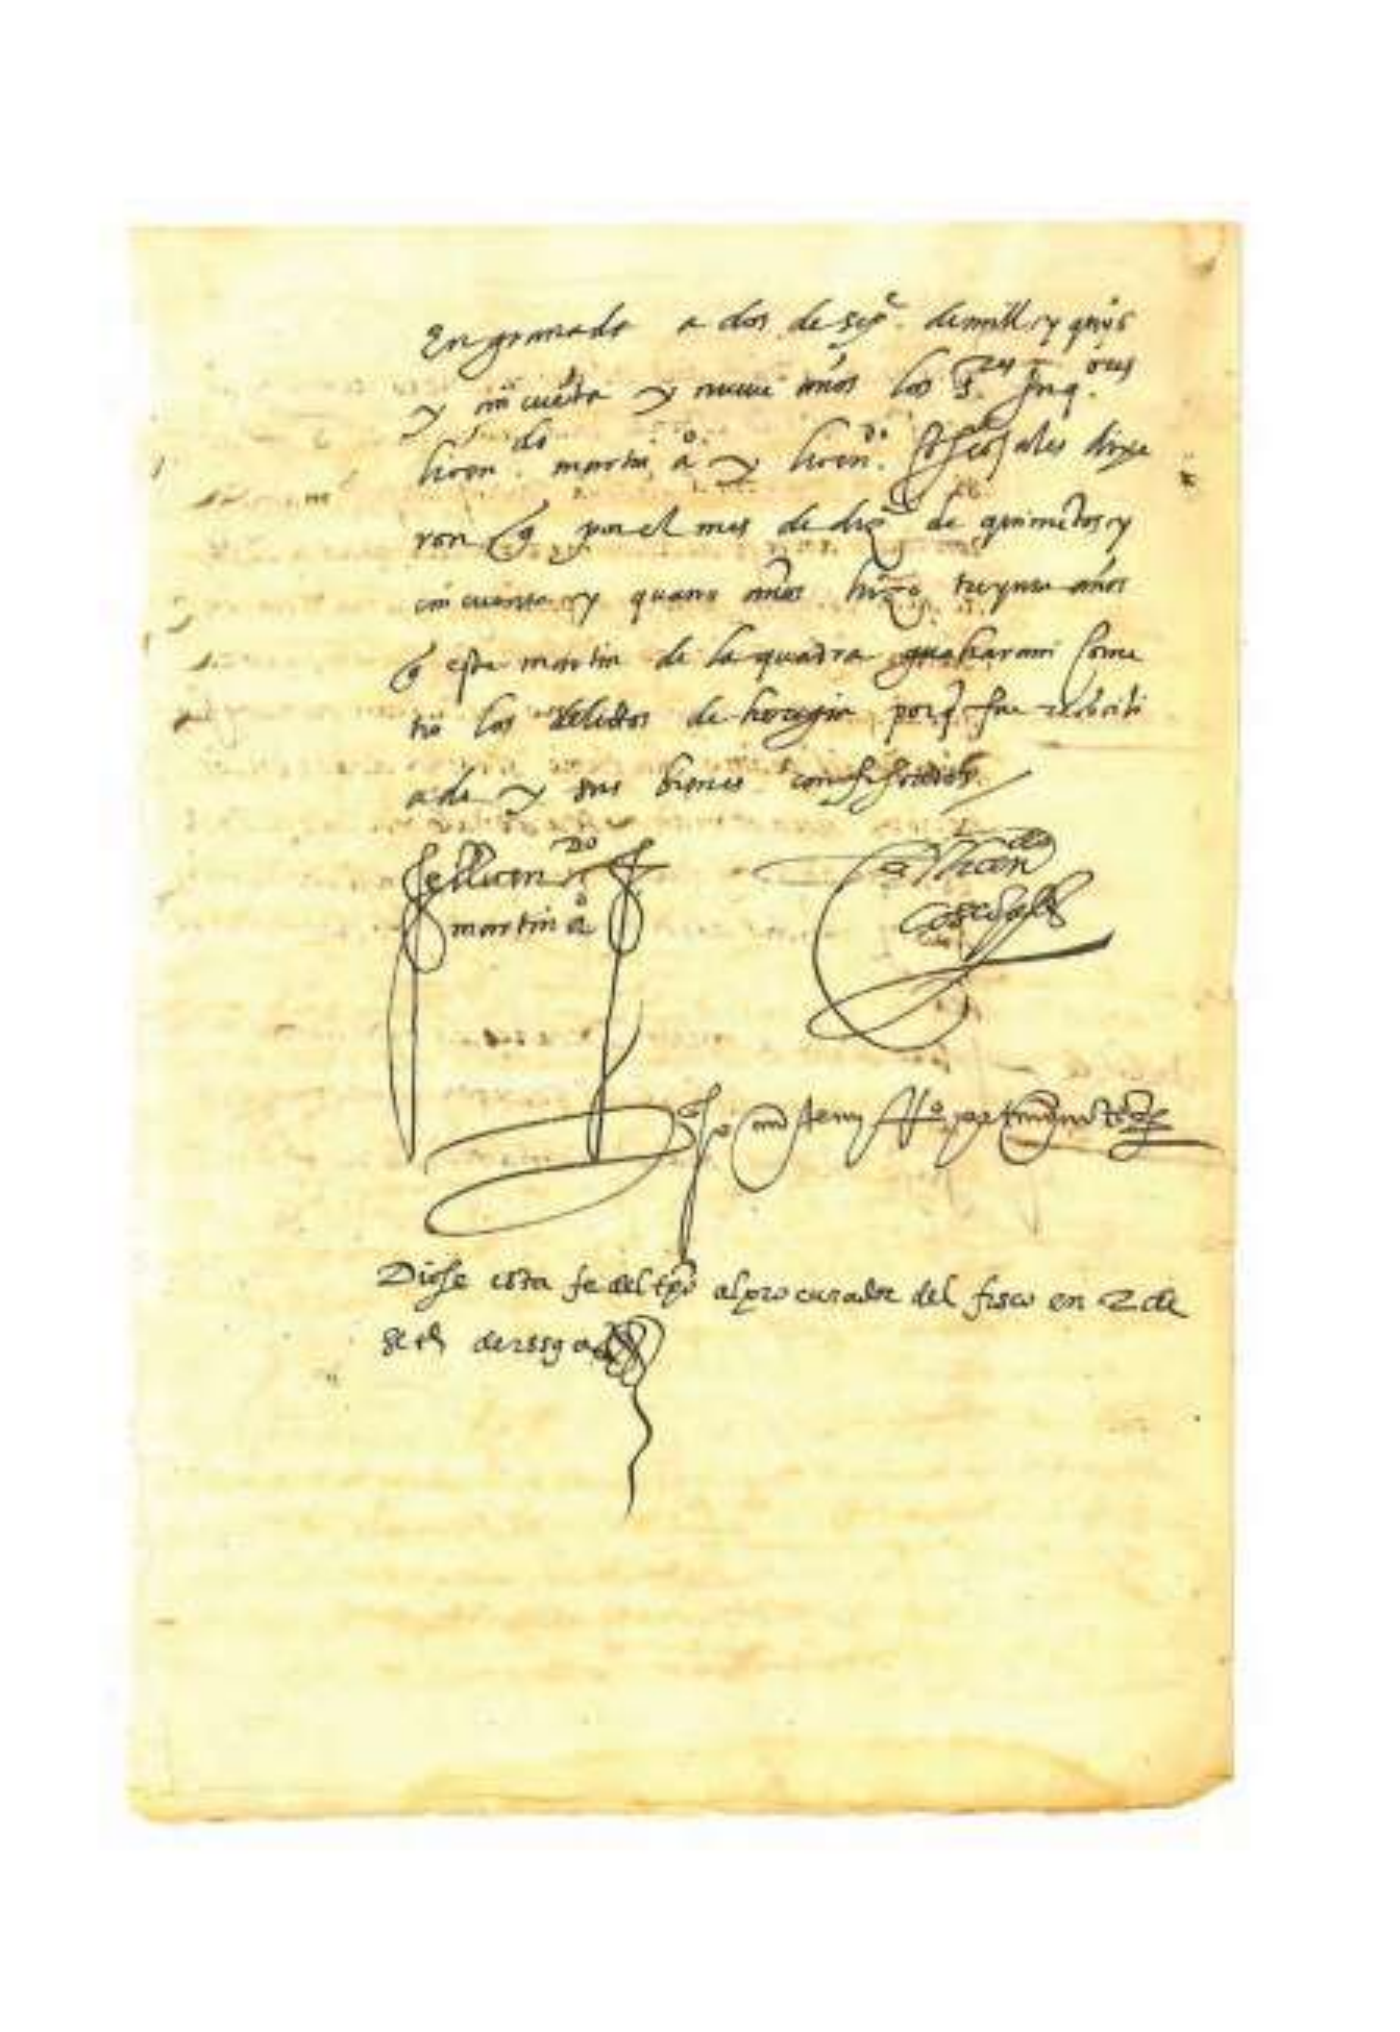 En granada a dos de sepe. de mill y qujos
y cincuenta y nueve años los s.res Inq.ores
licen.do martin a.o y licen.do coscojales dixe
ron q por el mes de dize de quinientos y
cincuenta y quatro años hizo treynta años
q esta martin de la quadra
tio los delictos de heregia porq fue reconcili
ado y sus bienes confiscados
el licen.do
martin a.o
el licen.do
coscojales
paso ante my
Diose esta fe del tpo al procurador del fisco en 2 de
set.e de 1559 a.os